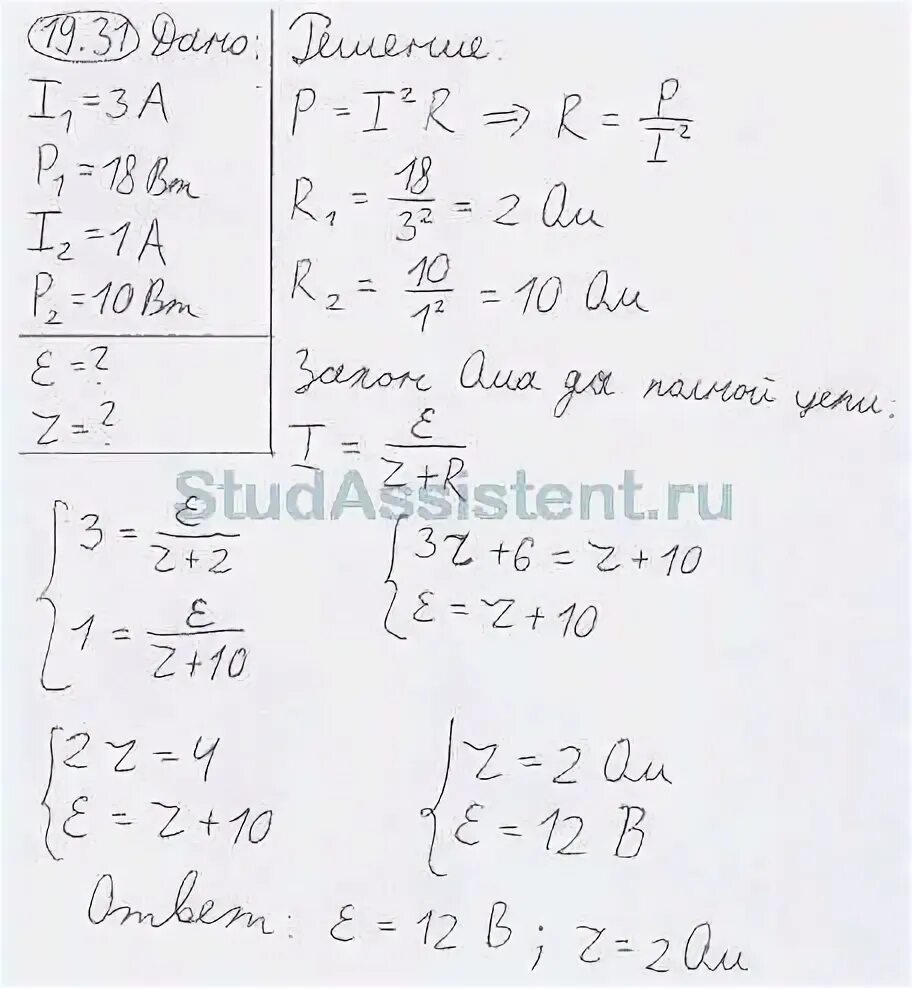 19.31 Дано:
I₁ = 3 А
P₁ = 18 Вт
I₂ = 1 А
P₂ = 10 Вт
ε = ?
r = ?
Решение:
P = I² R ⇒ R = P/I²
R₁ = 18/3² = 2 Ом
R₂ = 10/1² = 10 Ом
Закон Ома для полной цепи:
I = ε/(r + R)
StudAssistent.ru
{ 3 = ε/(r + 2)
1 = ε/(r + 10)
{ 3r + 6 = r + 10
ε = r + 10
{ 2r = 4
ε = r + 10
{ r = 2 Ом
ε = 12 В
Ответ: ε = 12 В ; r = 2 Ом